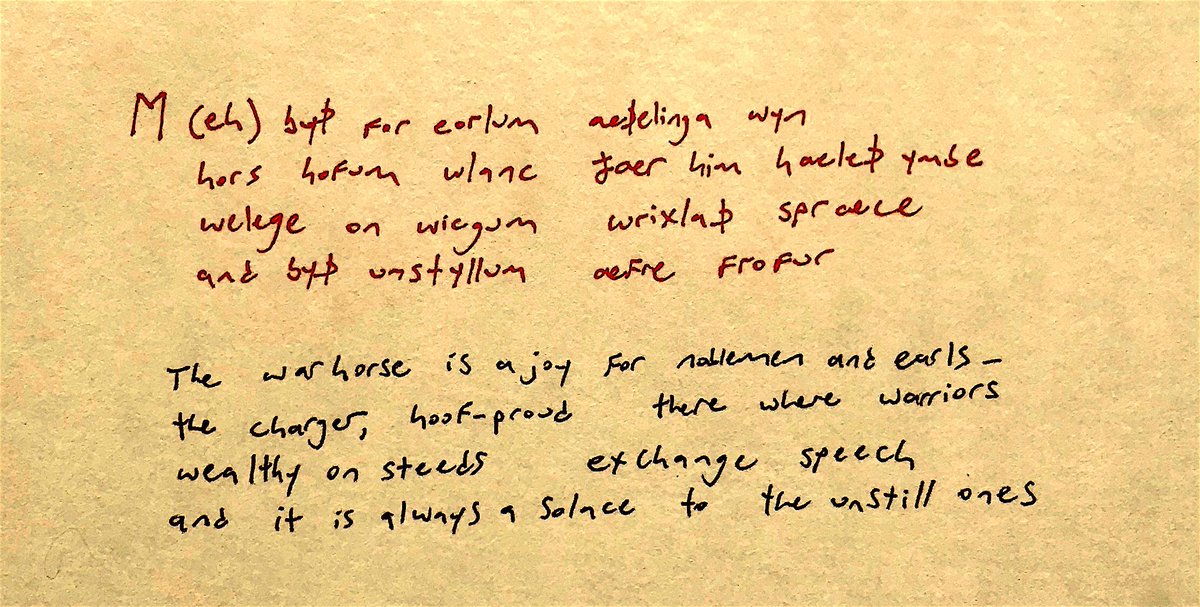 M (eh) byþ for eorlum aeþelinga wyn
hors hofum wlanc þaer him haeleþ ymbe
welege on wicgum wrixlaþ spraece
and byþ unstyllum aefre frofur
The warhorse is a joy for noblemen and earls –
the charger, hoof-proud there where warriors
wealthy on steeds exchange speech
and it is always a solace to the unstill ones